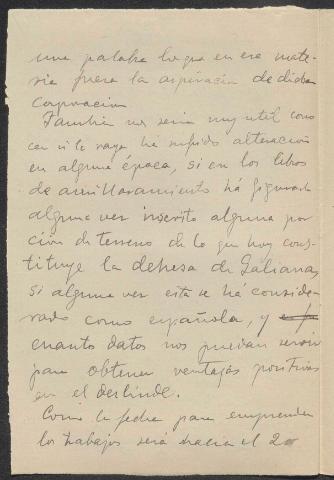 una palabra lo que en esa mate-
ria fuera la aspiración de dicha
Corporación
También nos seria muy util cono
cer si la raya ha sufrido alteración
en alguna época, si en los libros
de amillaramiento ha figurado
alguna vez inscrito alguna por
ción de terreno de lo que hoy cons-
tituye la dehesa de Galiana,
si alguna vez esta se há conside-
rado como española, y
cuantos datos nos puedan servir
para obtener ventajas positivas
en el deslinde.
Como la fecha para emprender
los trabajos será hacia el 20